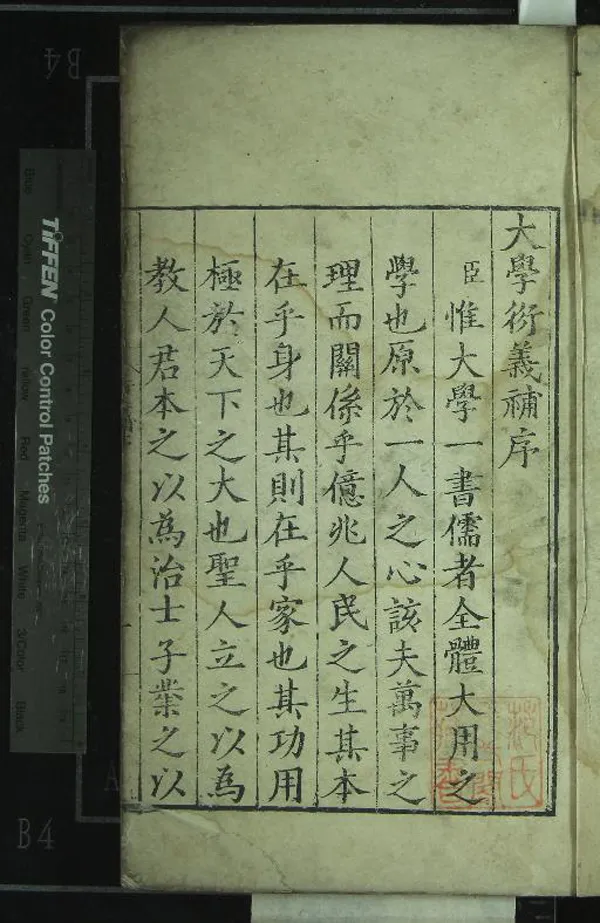 大學衍義補序
臣惟大學一書儒者全體大用之
學也原於一人之心該夫萬事之
理而關係乎億兆人民之生其本
在乎身也其則在乎家也其功用
極於天下之大也聖人立之以為
教人君本之以為治士子業之以
B4
TIFFEN Color Control Patches
Blue Cyan Green Yellow Red Magenta White 3/Color Black
B4
A